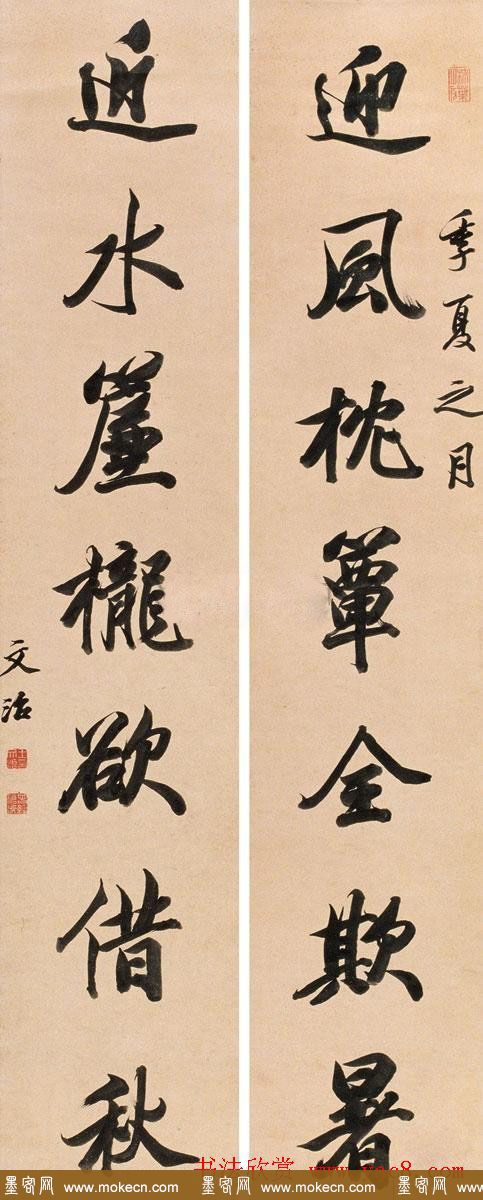 迎風枕簟全欺暑
季夏之月
近水簾櫳欲借秋
文治
书法欣赏
墨客网 www.mokecn.com 墨客网 www.mokecn.com 墨客网 www.mokecn.com